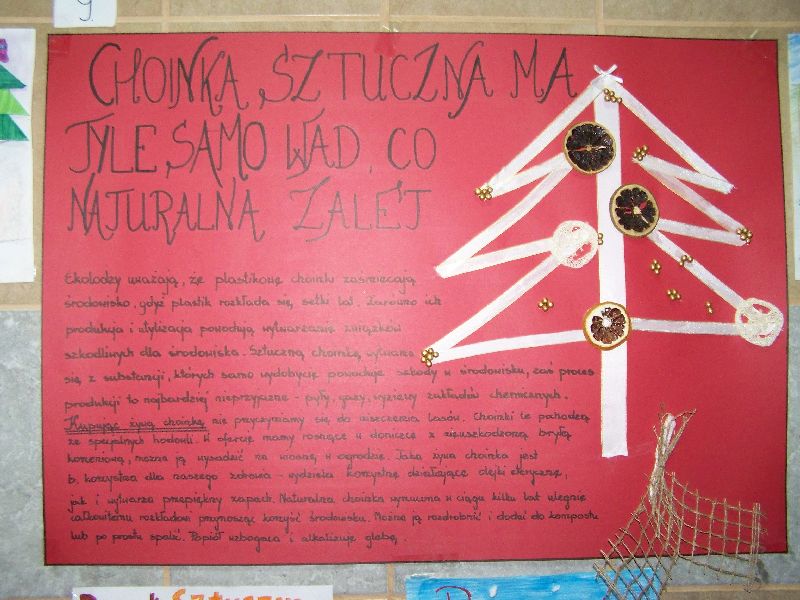 9
CHOINKA SZTUCZNA MA
TYLE SAMO WAD, CO
NATURALNA ZALET
Ekolodzy uważają, że plastikowe choinki zaśmiecają
środowisko, gdyż plastik rozkłada się setki lat. Zarówno ich
produkcja i utylizacja powodują wytwarzanie związków
szkodliwych dla środowiska. Sztuczną choinkę wytwarza
się z substancji, których samo wydobycie powoduje szkody w środowisku, zaś proces
produkcji to najbardziej nieprzyjazne - pyły, gazy, wyziewy zakładów chemicznych.
Kupując żywą choinkę nie przyczyniamy się do niszczenia lasów. Choinki te pochodzą
ze specjalnych hodowli. W ofercie mamy rosnące w donicze z nieuszkodzoną bryłą
korzeniową, można ją wysadzić na wiosnę w ogrodzie. Taka żywa choinka jest
b. korzystna dla naszego zdrowia - wydziela korzystnie działające olejki eteryczne,
jak i wytwarza przepiękny zapach. Naturalna choinka wyrzucona w ciągu kilku lat ulegnie
całkowitemu rozkładowi przynosząc korzyść środowisku. Można ją rozdrobnić i dodać do kompostu
lub po prostu spalić. Popiół wzbogaca i alkalizuje glebę.